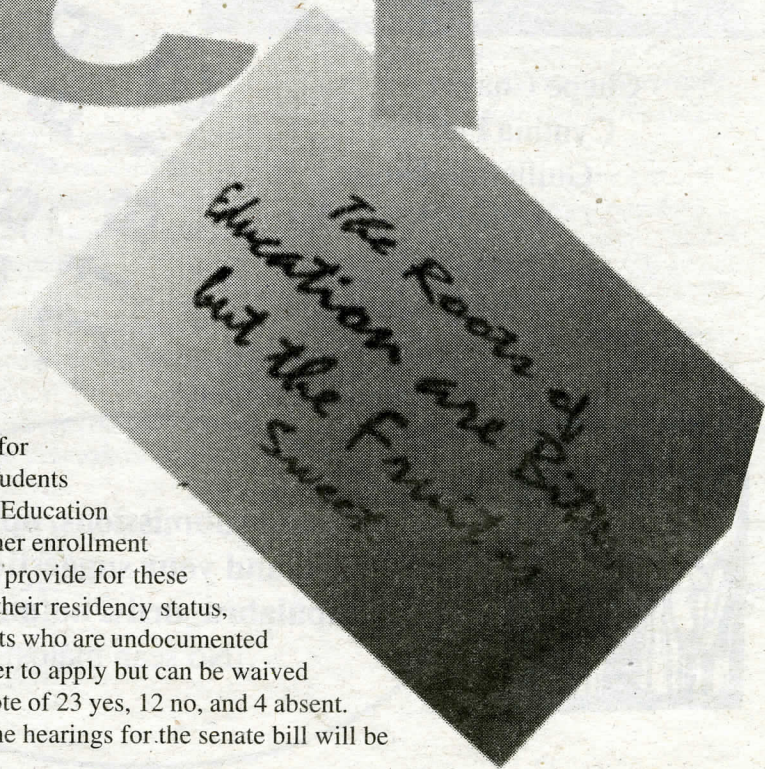 The Roots of
Education are Bitter
but the Fruit is
Sweet
for
udents
Education
her enrollment
provide for these
their residency status,
ts who are undocumented
er to apply but can be waived
ote of 23 yes, 12 no, and 4 absent.
he hearings for the senate bill will be